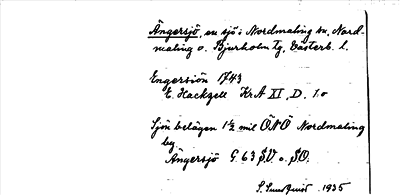 Ångersjö, en sjö i Nordmaling sn, Nord-
maling o. Bjurholm tg, Västerb. l.
Engersiön 1743
E. Hackzell KrA XI, D. 10
Sjön belägen 1½ mil ÖNÖ Nordmaling
by
Ångersjö G. 63 SV. o. SO.
1935